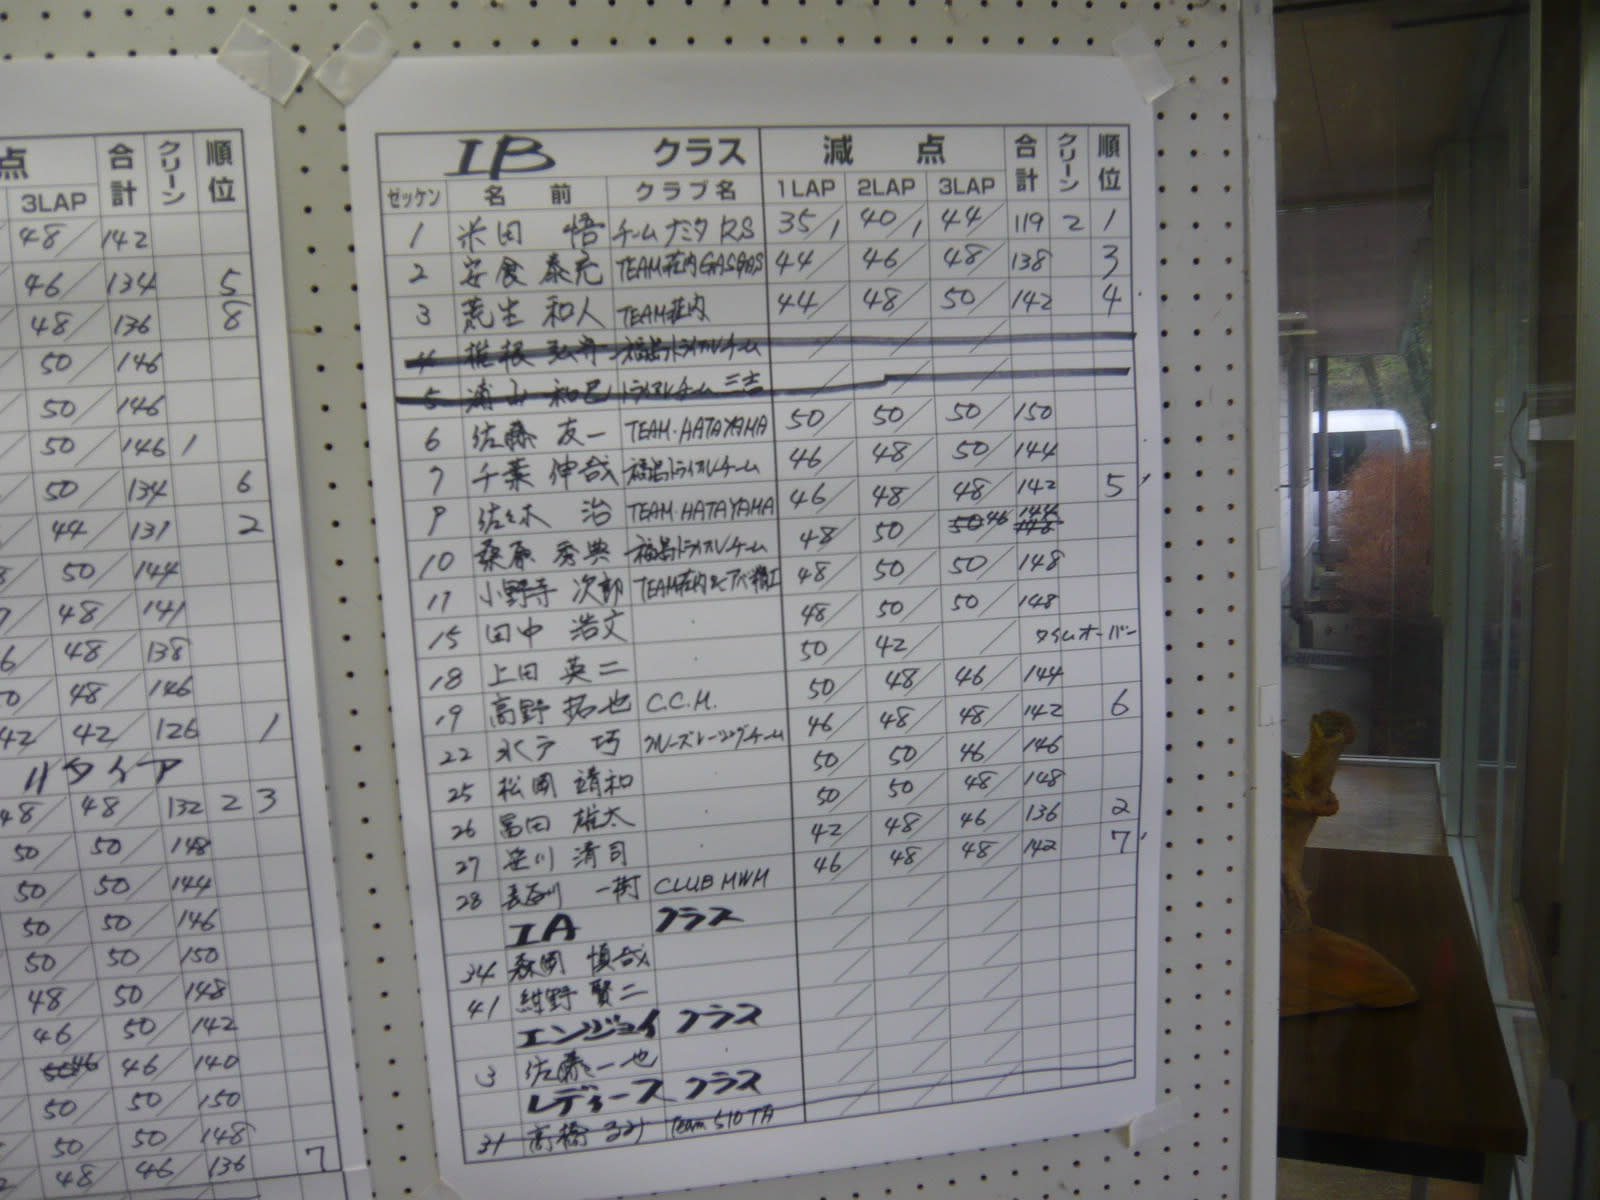 点 合計 クリーン 順位
3LAP
48 142
46 134 5
48 136 8
50 146
50 146
50 146 1
50 134 6
44 131 2
50 144
48 141
48 138
48 146
42 42 126 1
リタイア
48 48 132 2 3
50 50 148
50 50 144
50 50 146
50 50 150
48 50 148
46 50 142
46 46 140
50 50 150
50 50 148
48 46 136 7
IB クラス 減点 合計 クリーン 順位
ゼッケン 名前 クラブ名 1LAP 2LAP 3LAP
1 米田 悟 チームナミタRS 35/1 40/1 44/ 119 2 1
2 安食 泰充 TEAM荘内GASGAS 44/ 46/ 48/ 138 3
3 荒生 和人 TEAM荘内 44/ 48/ 50/ 142 4
4 椎根 弘 福島トライアルチーム
5 浦山 和巳 トライアルチーム 三吉
6 佐藤 友一 TEAM・HATAYAMA 50/ 50/ 50/ 150
7 千葉 伸哉 福島トライアルチーム 46/ 48/ 50/ 144
9 佐々木 治 TEAM・HATAYAMA 46/ 48/ 48/ 142 5
10 桑原 秀典 福島トライアルチーム 48/ 50/ 50 46 144 148
11 小野寺 次郎 TEAM荘内 48/ 50/ 50/ 148
15 田中 浩文 48/ 50/ 50/ 148
18 上田 英二 50/ 42/ / タイムオーバー
19 高野 拓也 C.C.M. 50/ 48/ 46/ 144
22 水戸 巧 ブルーズレーシングチーム 46/ 48/ 48/ 142 6
25 松岡 靖和 50/ 50/ 46/ 146
26 冨田 雄太 50/ 50/ 48/ 148
27 笹川 清司 42/ 48/ 46/ 136 2
28 長谷川 一樹 CLUB MWM 46/ 48/ 48/ 142 7
IA クラス
34 森岡 慎哉
41 紺野 賢二
エンジョイ クラス
3 佐藤 一也
レディース クラス
31 高橋 Team 510 TA